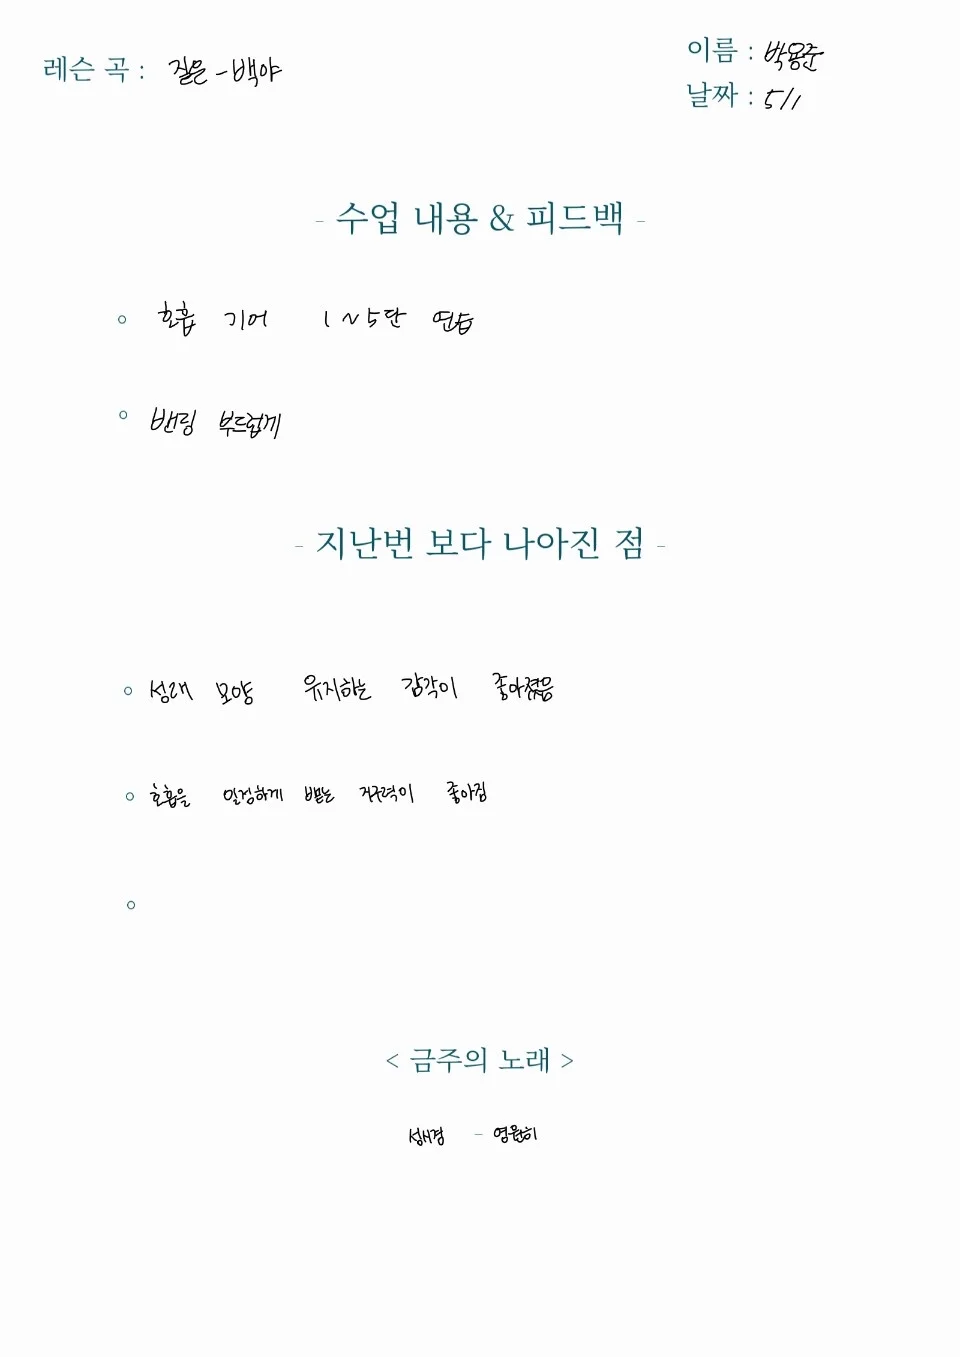 레슨 곡 : 짙은 - 백야
이름 : 박용준
날짜 : 5/1
- 수업 내용 & 피드백 -
○ 호흡 기어 1~5단 연습
○ 밴딩 부드럽게
- 지난번 보다 나아진 점 -
○ 성대 모양 유지하는 감각이 좋아졌음
○ 호흡을 일정하게 뱉는 지구력이 좋아짐
○
< 금주의 노래 >
성시경 - 영원히